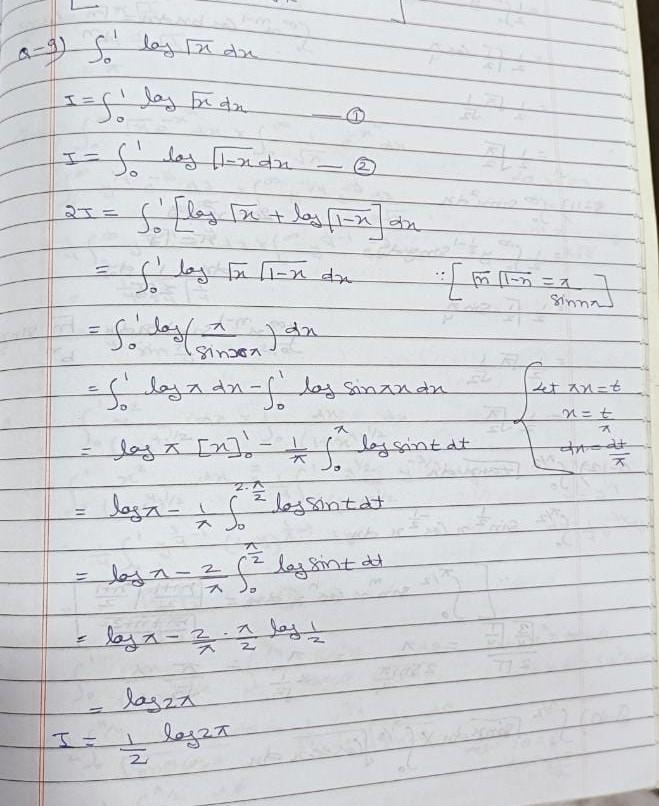 Q-9) ∫₀¹ log Γx dx
I = ∫₀¹ log Γx dx — ①
I = ∫₀¹ log Γ1-x dx — ②
2I = ∫₀¹ [log Γx + log Γ1-x] dx
= ∫₀¹ log Γx Γ1-x dx ∵ [Γn Γ1-n = π / sin nπ]
= ∫₀¹ log (π / sin xπ) dx
= ∫₀¹ log π dx - ∫₀¹ log sin πx dx { Let πx = t
x = t/π
dx = dt/π
= log π [x]₀¹ - 1/π ∫₀^π log sin t dt
= log π - 1/π ∫₀^(2·π/2) log sin t dt
= log π - 2/π ∫₀^(π/2) log sin t dt
= log π - 2/π · π/2 log 1/2
= log 2π
I = 1/2 log 2π